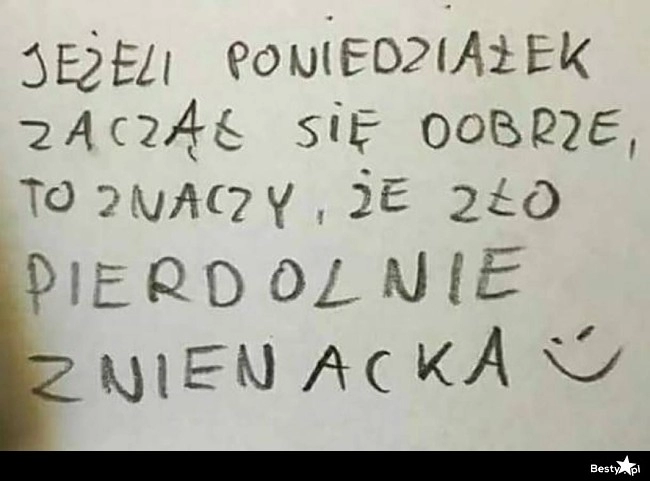 JEŻELI PONIEDZIAŁEK
ZACZĄŁ SIĘ DOBRZE,
TO ZNACZY, ŻE ZŁO
PIERDOLNIE
ZNIENACKA :)
Besty.pl